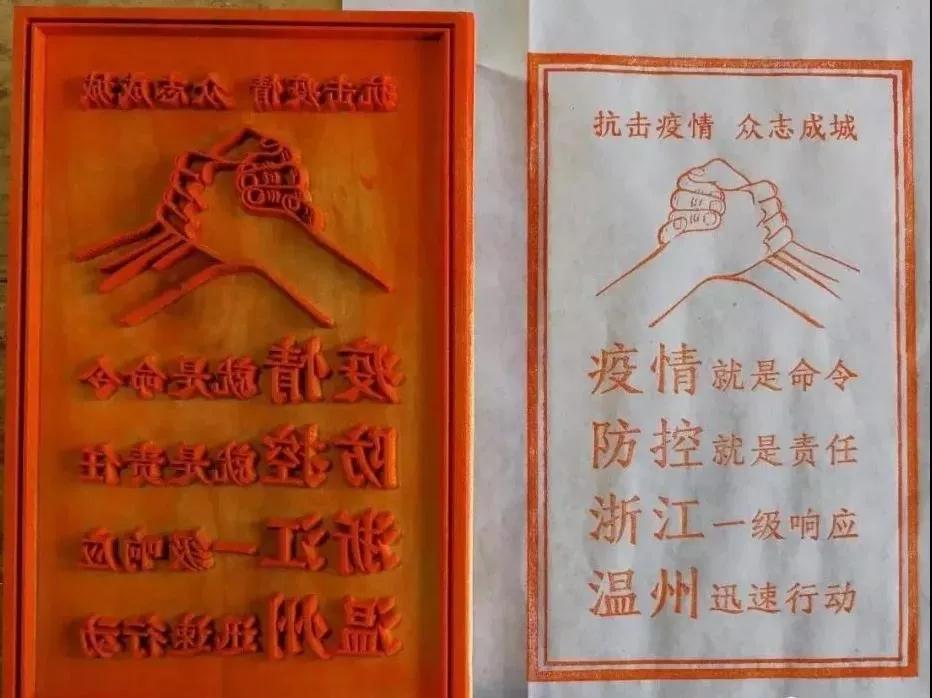 抗击疫情 众志成城
疫情就是命令
防控就是责任
浙江一级响应
温州迅速行动
抗击疫情 众志成城
疫情就是命令
防控就是责任
浙江一级响应
温州迅速行动